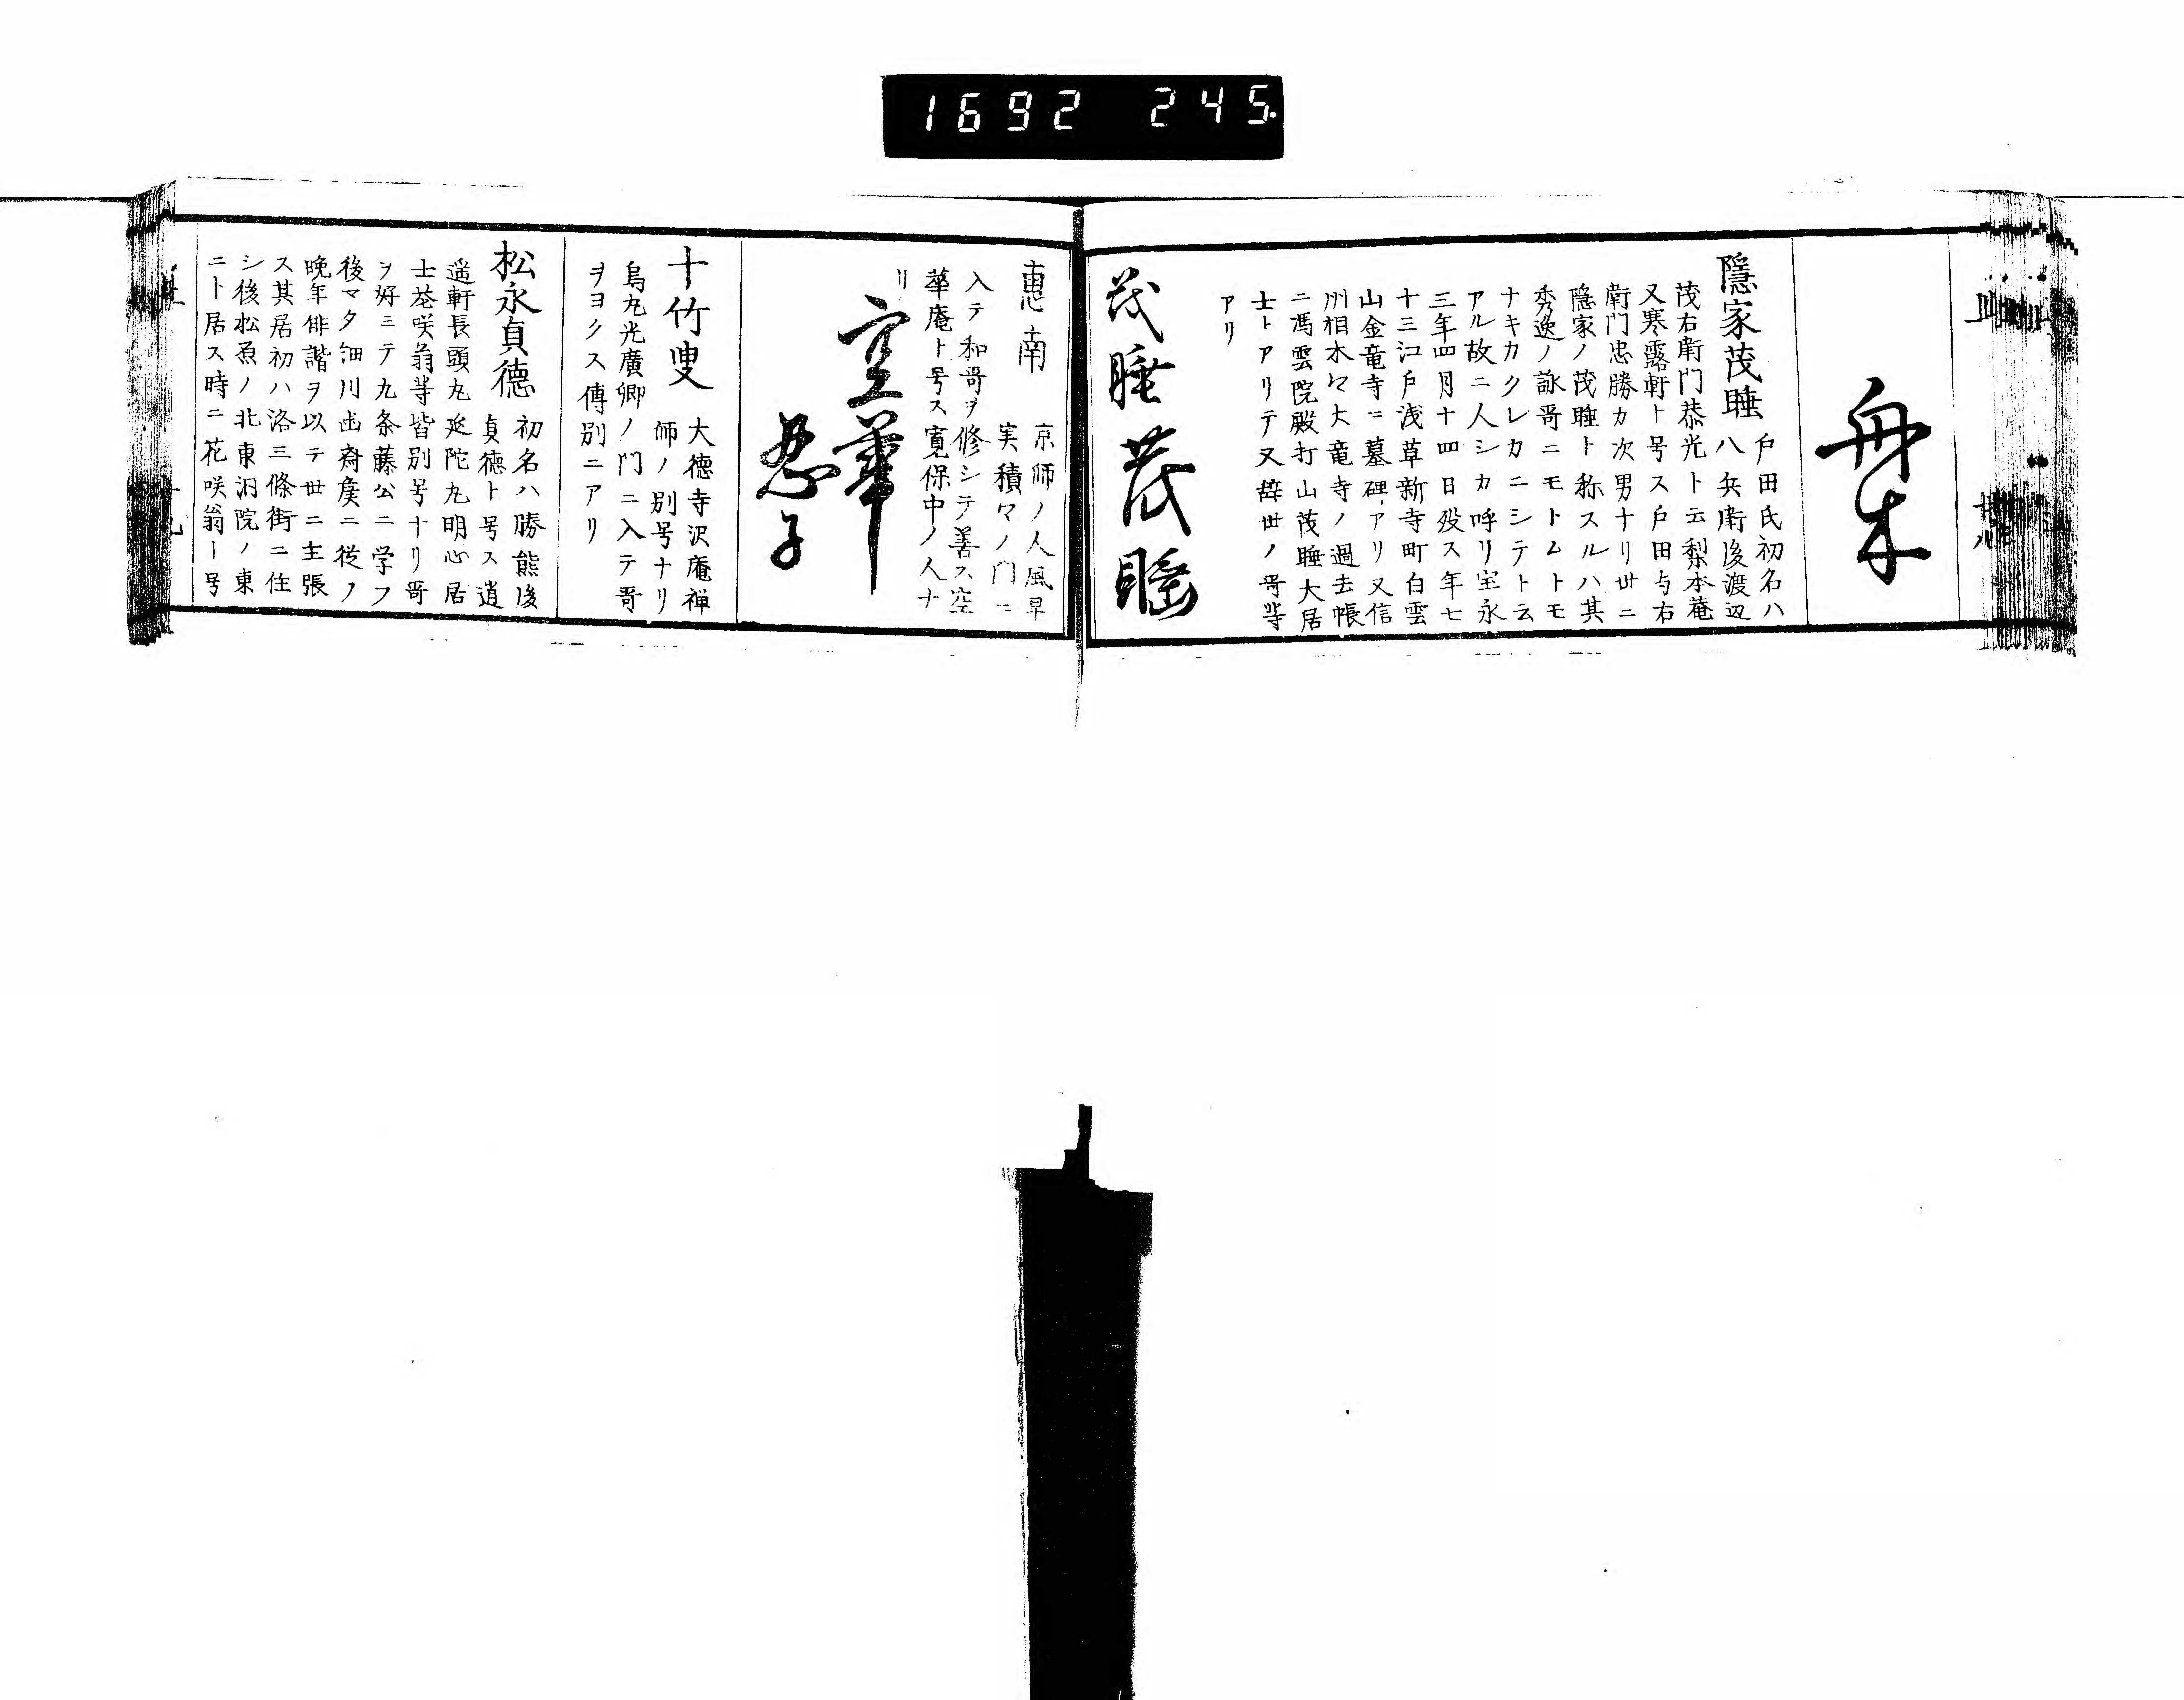 1692 245.
舟木
隱家茂睡
戸田氏初名ハ
八兵衛後渡辺
茂右衛門恭光ト云梨本菴
又寒露軒ト号ス戸田与右
衛門忠勝カ次男ナリ世ニ
隠家ノ茂睡ト称スルハ其
秀逸ノ詠哥ニモトムトモ
ナキカクレカニシテト云
アル故ニ人シカ呼リ宝永
三年四月十四日歿ス年七
十三江戸浅草新寺町白雲
山金竜寺ニ墓碑アリ又信
州相木々大竜寺ノ過去帳
ニ馮雲院殿打山茂睡大居
士トアリテ又辞世ノ哥等
アリ
茂睡 茂睡
恵南
京師ノ人風早
実積々ノ門ニ
入テ和哥ヲ修シテ善ス空
華庵ト号ス寛保中ノ人ナ
リ
空華
忍子
十竹叟
大徳寺沢庵禅
師ノ別号ナリ
烏丸光廣卿ノ門ニ入テ哥
ヲヨクス傳別ニアリ
松永貞德
初名ハ勝熊後
貞徳ト号ス逍
遥軒長頭丸延陀丸明心居
士花咲翁等皆別号ナリ哥
ヲ好ミテ九条藤公ニ学フ
後マタ細川幽斎矦ニ従ノ
晩年俳諧ヲ以テ世ニ主張
ス其居初ハ洛三條街ニ住
シ後松原ノ北東洞院ノ東
ニト居ス時ニ花咲翁ー号